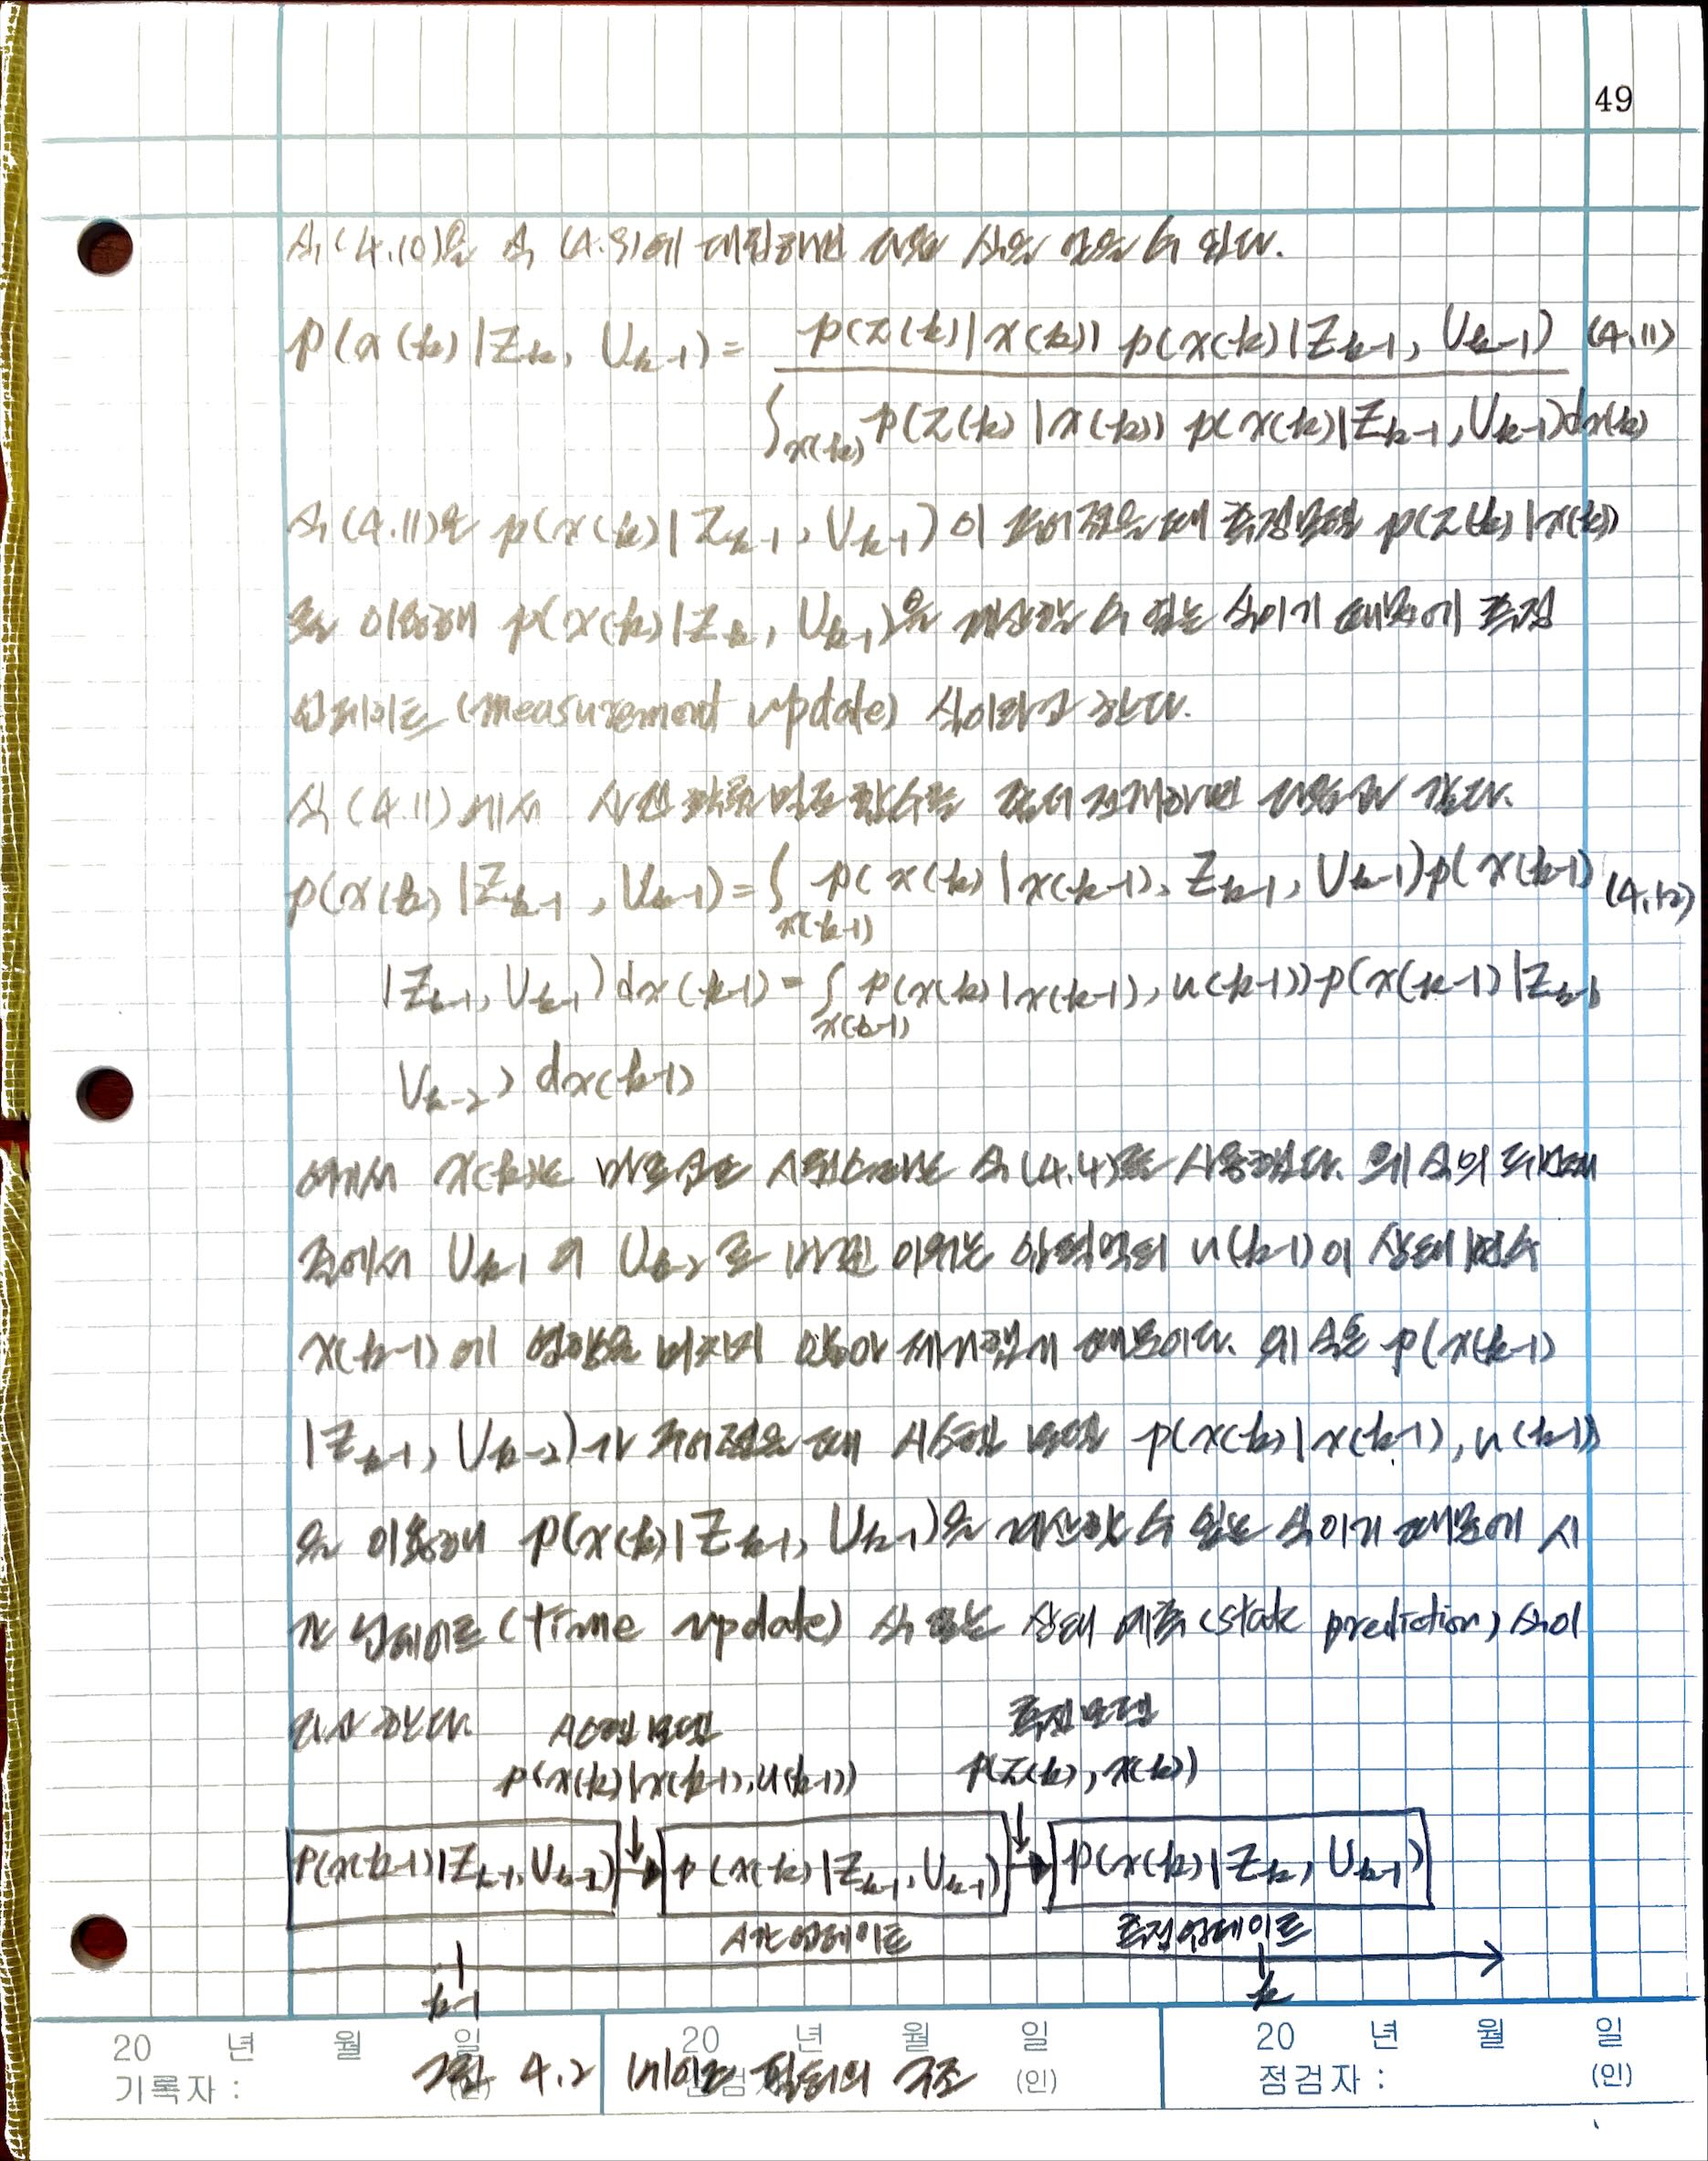 49
식 (4.10)을 식 (4.9)에 대입하면 다음 식을 얻을 수 있다.
p(x(k)|Z_k, U_k-1) = p(z(k)|x(k)) p(x(k)|Z_k-1, U_k-1) (4.11)
∫_x(k) p(z(k)|x(k)) p(x(k)|Z_k-1, U_k-1)dx(k)
식 (4.11)은 p(x(k)|Z_k-1, U_k-1)이 주어졌을 때 측정 모델 p(z(k)|x(k))
를 이용해 p(x(k)|Z_k, U_k-1)을 계산할 수 있는 식이기 때문에 측정
업데이트 (measurement update) 식이라고 한다.
식 (4.11)에서 사전 확률밀도함수를 전개하면 다음과 같다.
p(x(k)|Z_k-1, U_k-1) = ∫_x(k-1) p(x(k)|x(k-1), Z_k-1, U_k-1)p(x(k-1) (4.12)
|Z_k-1, U_k-1)dx(k-1) = ∫_x(k-1) p(x(k)|x(k-1), u(k-1))p(x(k-1)|Z_k-1,
U_k-2) dx(k-1)
여기서 x(k)는 마르코프 시퀀스라는 식 (4.4)를 사용했다. 위 식의 두번째
줄에서 U_k-1이 U_k-2로 바뀐 이유는 입력벡터 u(k-1)이 상태변수
x(k-1)에 영향을 미치지 않아 제거했기 때문이다. 위 식은 p(x(k-1)
|Z_k-1, U_k-2)가 주어졌을 때 시스템 모델 p(x(k)|x(k-1), u(k-1))
을 이용해 p(x(k)|Z_k-1, U_k-1)을 계산할 수 있는 식이기 때문에 시
간 업데이트 (time update) 식 또는 상태 예측 (state prediction) 식이
라고 한다.
시스템 모델
측정 모델
p(x(k)|x(k-1), u(k-1))
p(z(k), x(k))
p(x(k-1)|Z_k-1, U_k-2)
p(x(k)|Z_k-1, U_k-1)
p(x(k)|Z_k, U_k-1)
시간 업데이트
측정 업데이트
k-1
k
20 년 월 일
20 년 월 일
20 년 월 일
기록자 :
(인)
점검자 : (인)
그림 4.2 베이즈 필터의 구조